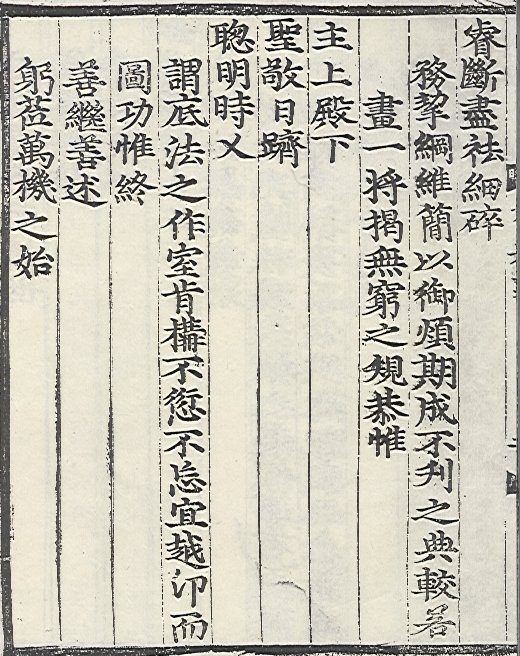 睿斷盡祛細碎
務挈綱維簡以御煩期成不刋之典較若
畫一將揭無窮之規恭惟
主上殿下
聖敬日躋
聰明時乂
謂底法之作室肯構不愆不忘宜越卬而
圖功惟終
善繼善述
躬莅萬機之始